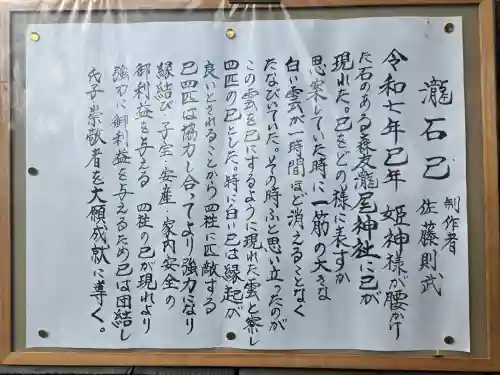 瀧石巳
制作者
佐藤則武
令和七年巳年 姫神様が腰かけ
た石のある森友瀧尾神社に巳が
現れた。巳をどの様に表すか
思案していた時に一筋の大きな
白い雲が一時間ほど消えることなく
たなびいていた。その時ふと思い立ったのが
この雲を巳にするように現れた雲と察し
四匹の巳とした。特に白い巳は縁起が
良いとされることから四柱に匹敵する
巳四匹は協力し合ってより強力になり
縁結び・子宝・安産・家内安全の
御利益を与える 四柱の巳が現れより
強力に御利益を与えるため巳は団結し
氏子崇敬者を大願成就に導く。